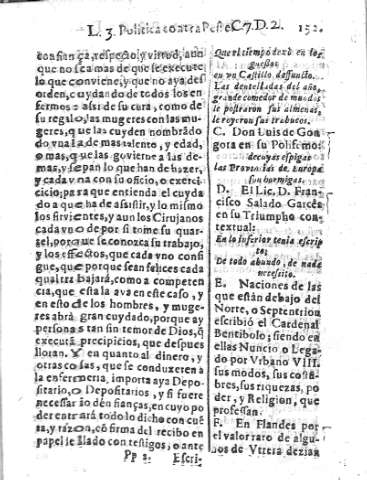 L. 3. Politica contra Peste C. 7. D. 2. 152.
confiança, respeto y virtud, aun
que no sea mas de que se execute
lo que conviene, y que no aya des
orden, cuydando de todos los en
fermos assi de su cura, como de
su regalo, las mugeres con las mu-
geres, que las cuyden nombrādo
do vna la de mas talento, y edad,
o mas, que las govierne a las de-
mas, y sepan lo que han de hazer,
y cada vna con su oficio, o exerci-
cicio; para que entienda el cuyda
do a que ha de assistir, y lo mismo
los sirvientes, y aun los Cirujanos
cada vno de por si tome su quar-
tel, porque se conozca su trabajo;
y los efectos, que cada vno consi
gue, que porque sean felices cada
qual trabajará, como a competen
cia, que esta la ava en este caso, y
en esto de los hombres, y muge-
res abrá gran cuydado, porque ay
personas tan sin temor de Dios, q̄
executā precipicios, que despues
lloran. Y en quanto al dinero, y
otras cosas, que se conduxeren à
la enfermeria, importa aya Depo-
sitario, o Depositarios, y si fuere
necessario dèn fianças, en cuyo po
der entrará todo lo dicho con cuē
ta, y razon, cō firma del recibo en
papel sellado con testigos, o ante
Pp 2. Escri-
Que el tiempo
en vn Castillo
Las dentelladas del año,
grande comedor de mundos
le postraron sus almenas,
le royeron sus trabucos.
C. Don Luis de Gon
gora en su Polifemos
de cuyas espigas
las Provincias de Europa
son hormigas.
D. El Lic. D. Fran-
cisco Salado Garcès
en su Triumpho con-
textual:
En lo inferior tenia escrip
to;
De todo abundo, de nada
necessito.
E. Naciones de las
que están debajo del
Norte, o Septentrion
escribió el Cardenal
Bentibolo; siendo en
ellas Nuncio o Lega-
do por Vrbano VIII.
sus modos, sus costū-
bres, sus riquezas, po
der, y Religion, que
professan.
F. En Flandes por
el valor raro de algu-
nos de Vtrera dezian